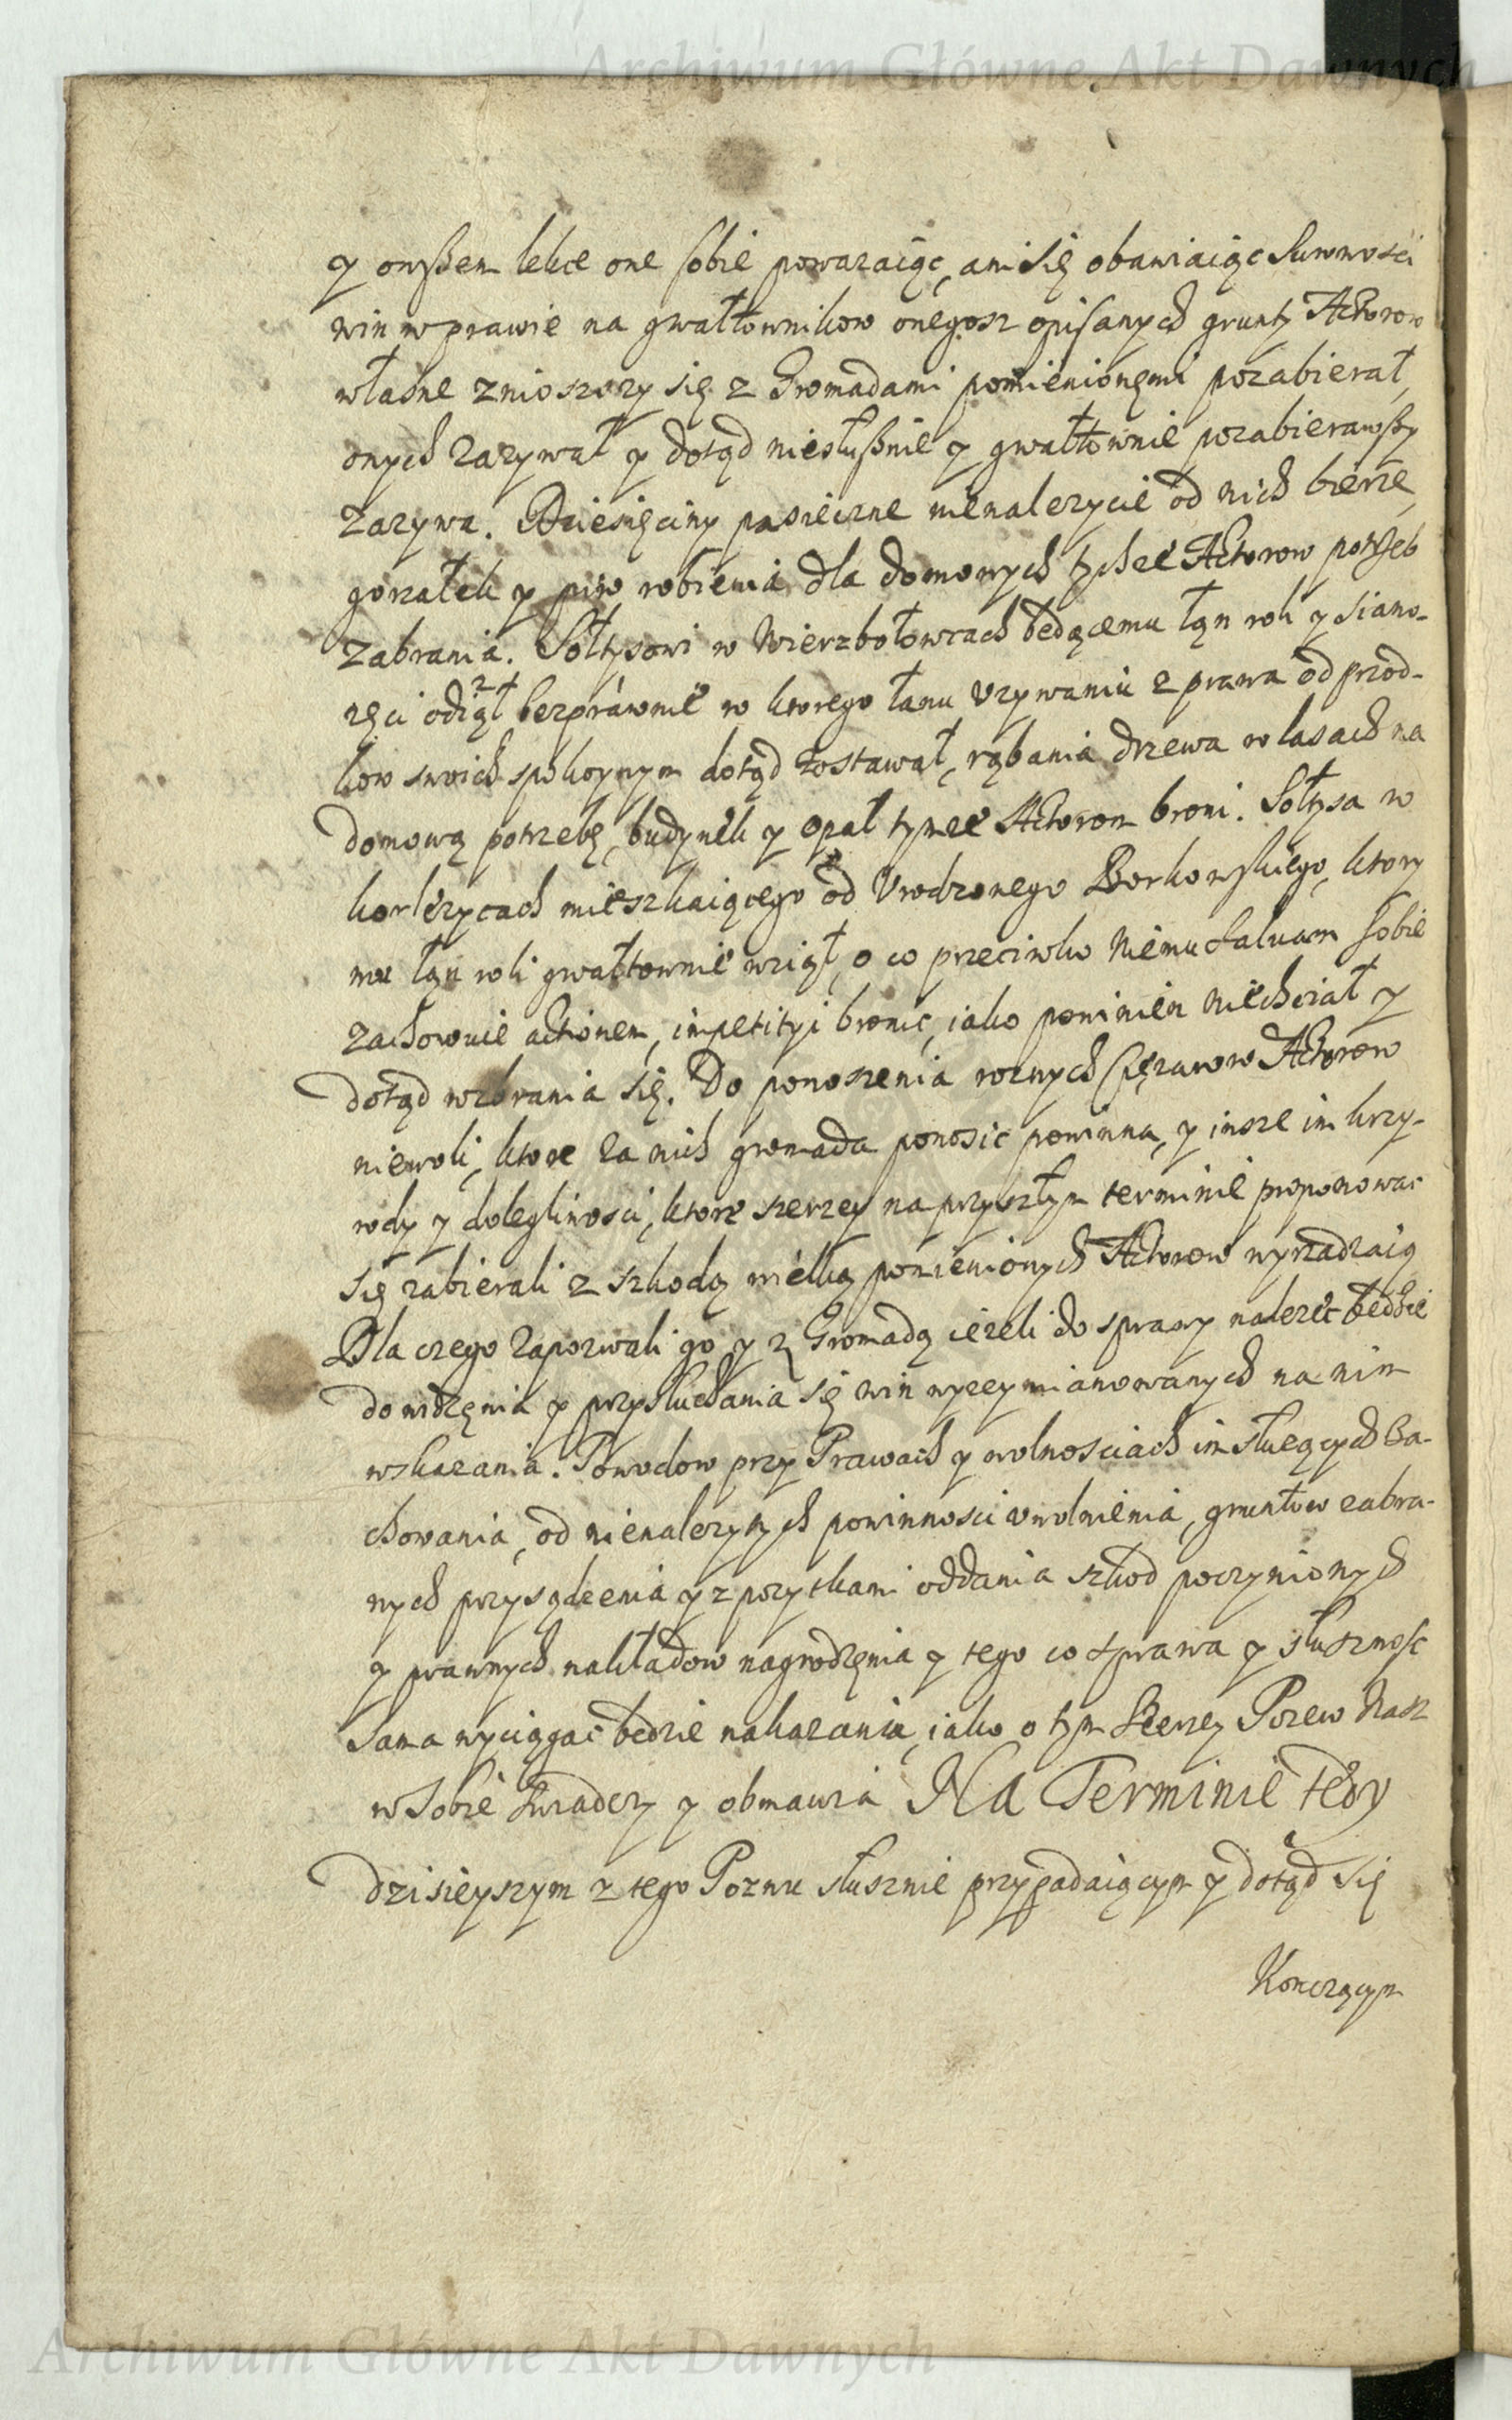 Archiwum Główne Akt Dawnych
y owßem lekce one sobie powazaiąc, ani się obawiaiąc surowości
win w prawie na gwałtownikow onegosz opisanych grunty Actorow
własne zniosszy się z Gromadami pomienionęmi pozabierał,
onych zazywał y dotąd niesłußnie y gwałtownie pozabierawßy
zazywa. Dziesięciny pasieczne nienalezycie od nich bierze,
gorzałek y piw robienia dla domowych tychze Actorow potrzeb
zabrania. Sołtysowi w Wierzbołowcach będącemu łąn roli y siano-
zęci odiął bezprawnie w ktorego łanu uzywaniu z prawa od przod-
kow swoich spokoynym dotąd zostawał, rąbania drzewa w lasach na
domową potrzebę, budynek y opał tymze Actorom broni. Sołtysa w
mieszkaiącego od Urodzonego Borkowskiego, ktory
mu łąn roli gwałtownie wziął, o co przeciwko niemu salvam sobie
zachowuie actionem, impetityi bronić, iako powinien niechciał y
dotąd wzbrania się. Do ponoszenia roznych Cięzarow Actorow
niewoli, ktore za nich gromada ponosic powinna, y insze im krzy-
wdy y dolegliwosci, ktore szerzey na przyszłym terminie proponowac
się zabierali z szkodą wielką pomienionych Actorow wyrządzaią
Dla czego zapozwali go y z Gromadą iezeli do sprawy nalezec będzie
do widzęnia y przysłuchania się win wyzeymianowanych na nim
wskazania. Powodow przy Prawach y wolnosciach im słuzących za-
chowania, od nienalezytych powinnosci uwolnienia, gruntow zabra-
nych przysądzenia y z pozytkami oddania szkod poczynionych
y prawnych nakładow nagrodzęnia y tego co sprawa y słusznosc
sama wyciągac będzie nakazania, iako o tym szerzey Pozew Nasz
w sobie swiadczy y obmawia Na Terminie tedy
dzisieyszym z tego Pozwu słusznie przypadaiącym y dotąd się
Konczącym
Archiwum Główne Akt Dawnych